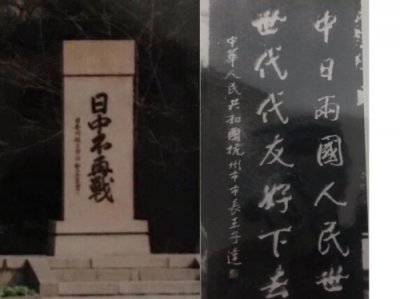 日中不再戦
中日兩國人民世
世代代友好下去
中華人民共和國杭州市市長王子達